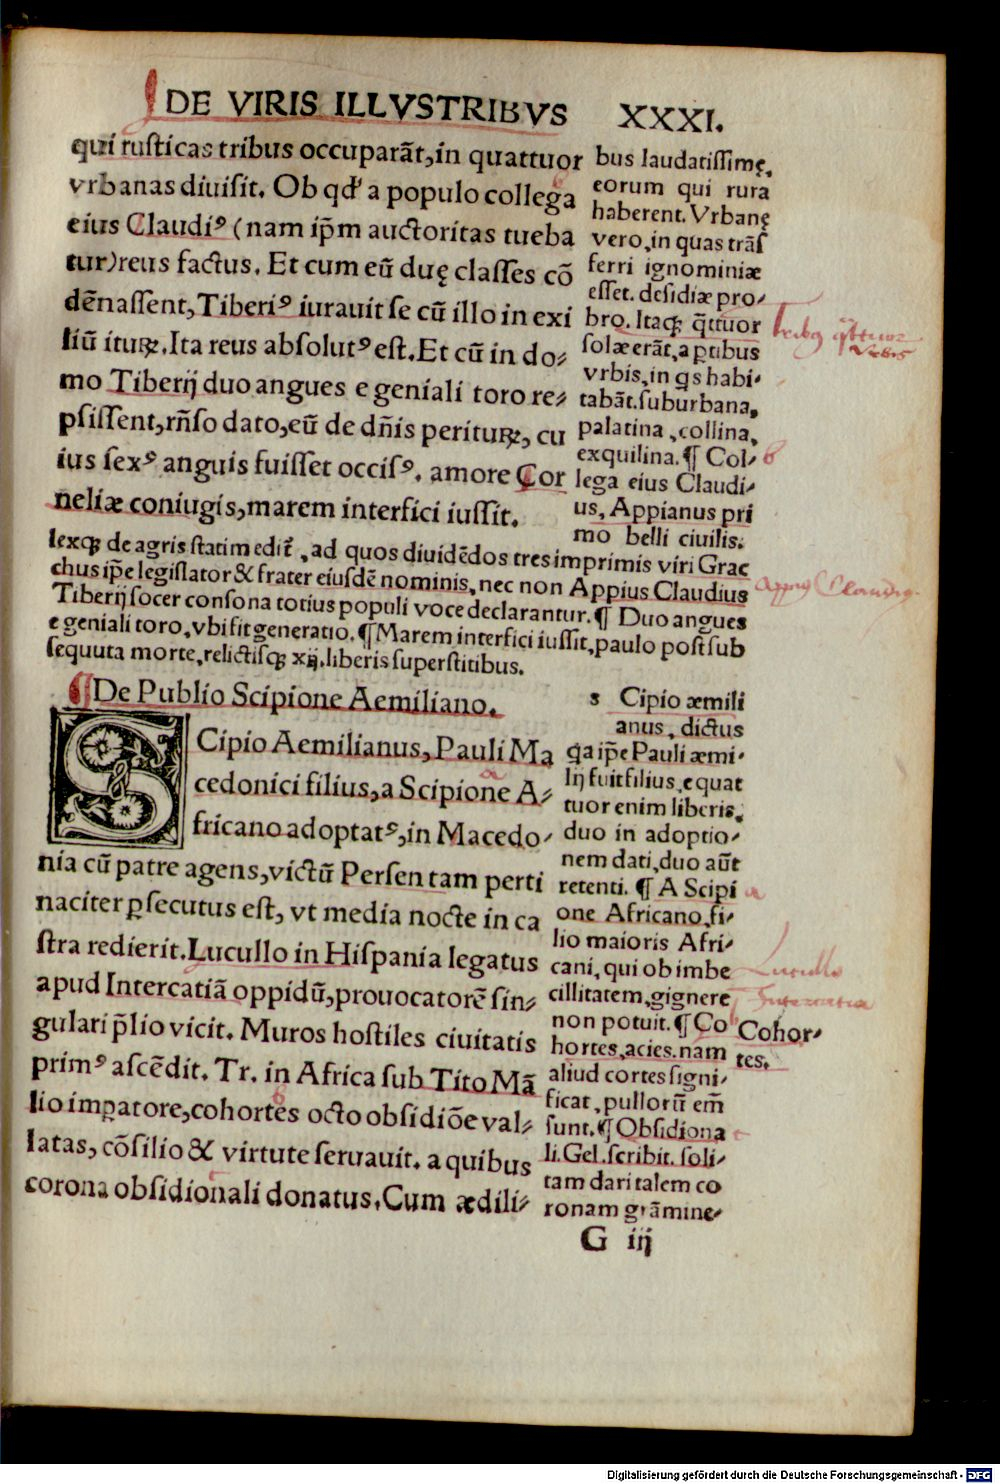 DE VIRIS ILLVSTRIBVS XXXI.
qui rusticas tribus occuparāt,in quattuor
vrbanas diuisit. Ob qd' a populo collega
eius Claudiꝰ (nam ip̄m auctoritas tueba
tur)reus factus. Et cum eū duę classes cō
dēnassent,Tiberiꝰ iurauit se cū illo in exi
liū ituꝝ.Ita reus absolutꝰ est.Et cū in do⸗
mo Tiberij duo angues e geniali toro re⸗
psissent,rñso dato,eū de dñis perituꝝ, cu
ius sexꝰ anguis fuisset occisꝰ. amore Cor
neliæ coniugis,marem interfici iussit.
bus laudatissimę.
eorum qui rura
haberent. Vrbanę
vero,in quas trās
ferri ignominiæ
esset. desidiæ pro⸗
bro. Itaqꝫ q̄ttuor
solæ erāt,a ꝑtibus
vrbis,in qs habi⸗
tabāt.suburbana,
palatina ,collina,
exquilina.¶ Col⸗
lega eius Claudi⸗
us, Appianus pri
mo belli ciuilis.
lexqꝫ de agris statim edit̄ , ad quos diuidēdos tres imprimis viri Grac
chus ip̄e legislator & frater eiusdē nominis, nec non Appius Claudius
Tiberij socer consona totius populi voce declarantur.¶ Duo angues
e geniali toro,vbi fit generatio.¶Marem interfici iussit,paulo post sub
sequuta morte,relictisqꝫ xij.liberis superstitibus.
¶De Publio Scipione Aemiliano.
SCipio Aemilianus, Pauli Ma
cedonici filius,a Scipione A⸗
fricano adoptatꝰ,in Macedo⸗
nia cū patre agens,victū Persen tam perti
naciter ꝑsecutus est, vt media nocte in ca
stra redierit.Lucullo in Hispania legatus
apud Intercatiā oppidū,prouocatorē sin⸗
gulari p̄lio vicit. Muros hostiles ciuitatis
primꝰ ascēdit. Tr. in Africa sub Tito Mā
lio impatore,cohortes octo obsidiōe val⸗
latas, cōsilio & virtute seruauit. a quibus
corona obsidionali donatus.Cum ædili⸗
s Cipio æmili
anus , dictus
qa ip̄e Pauli æmi⸗
lij fuit filius,e quat
tuor enim liberis,
duo in adoptio⸗
nem dati,duo aūt
retenti. ¶ A Scipi
one Africano,fi⸗
lio maioris Afri⸗
cani, qui ob imbe
cillitatem,gignere
non potuit.¶ Co
hortes,acies. nam
aliud cortes signi⸗
ficat ,pullorū em̄
sunt.¶ Obsidiona
li. Gel.scribit. soli⸗
tam dari talem co
ronam grāmine⸗
Cohor⸗
tes.
G iij
Lucullo
Intercatia
Digitalisierung gefördert durch die Deutsche Forschungsgemeinschaft - DFG